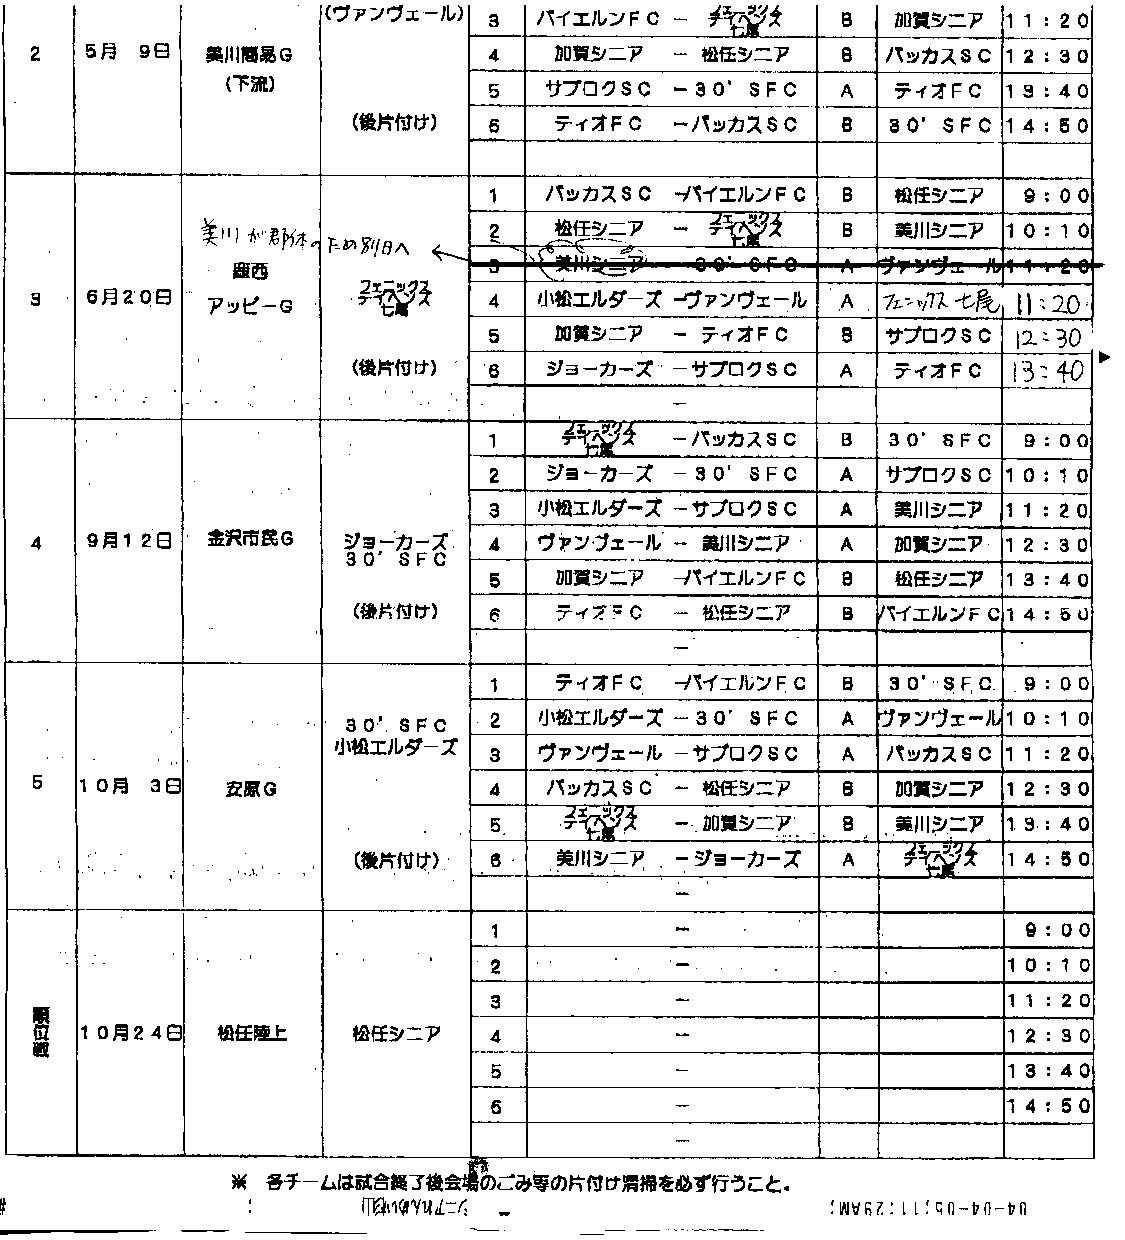 (ヴァンヴェール) 3 バイエルンFC － フェニックス ティヘンズ 七尾 B 加賀シニア 11:20
2 5月 9日 美川簡易G 4 加賀シニア － 松任シニア B バッカスSC 12:30
(下流) 5 サブロクSC －30'SFC A ティオFC 13:40
(後片付け) 6 ティオFC －バッカスSC B 30'SFC 14:50
1 バッカスSC －バイエルンFC B 松任シニア 9:00
美川が郡体のため別日へ 2 松任シニア － フェニックス ティヘンズ 七尾 B 美川シニア 10:10
鹿西 3 美川シニア － 30'SFC A ヴァンヴェール 11:20
3 6月20日 アッピーG フェニックス ティヘンズ 七尾 4 小松エルダーズ －ヴァンヴェール A フェニックス七尾 11:20
5 加賀シニア － ティオFC B サブロクSC 12:30
(後片付け) 6 ジョーカーズ －サブロクSC A ティオFC 13:40
－
1 フェニックス ティヘンズ 七尾 －バッカスSC B 30'SFC 9:00
2 ジョーカーズ － 30'SFC A サブロクSC 10:10
3 小松エルダーズ －サブロクSC A 美川シニア 11:20
4 9月12日 金沢市民G ジョーカーズ 4 ヴァンヴェール － 美川シニア A 加賀シニア 12:30
30'SFC 5 加賀シニア －バイエルンFC B 松任シニア 13:40
(後片付け) 6 ティオFC － 松任シニア B バイエルンFC 14:50
－
1 ティオFC －バイエルンFC B 30'SFC 9:00
30'SFC 2 小松エルダーズ － 30'SFC A ヴァンヴェール 10:10
小松エルダーズ 3 ヴァンヴェール －サブロクSC A バッカスSC 11:20
5 10月 3日 安原G 4 バッカスSC － 松任シニア B 加賀シニア 12:30
5 フェニックス ティヘンズ 七尾 － 加賀シニア B 美川シニア 13:40
(後片付け) 6 美川シニア －ジョーカーズ A フェニックス ティヘンズ 七尾 14:50
－
1 － 9:00
2 － 10:10
3 － 11:20
順位戦 10月24日 松任陸上 松任シニア 4 － 12:30
5 － 13:40
6 － 14:50
－
※ 各チームは試合終了後会場のごみ等の片付け清掃を必ず行うこと。
04-04-05;11:29AM;